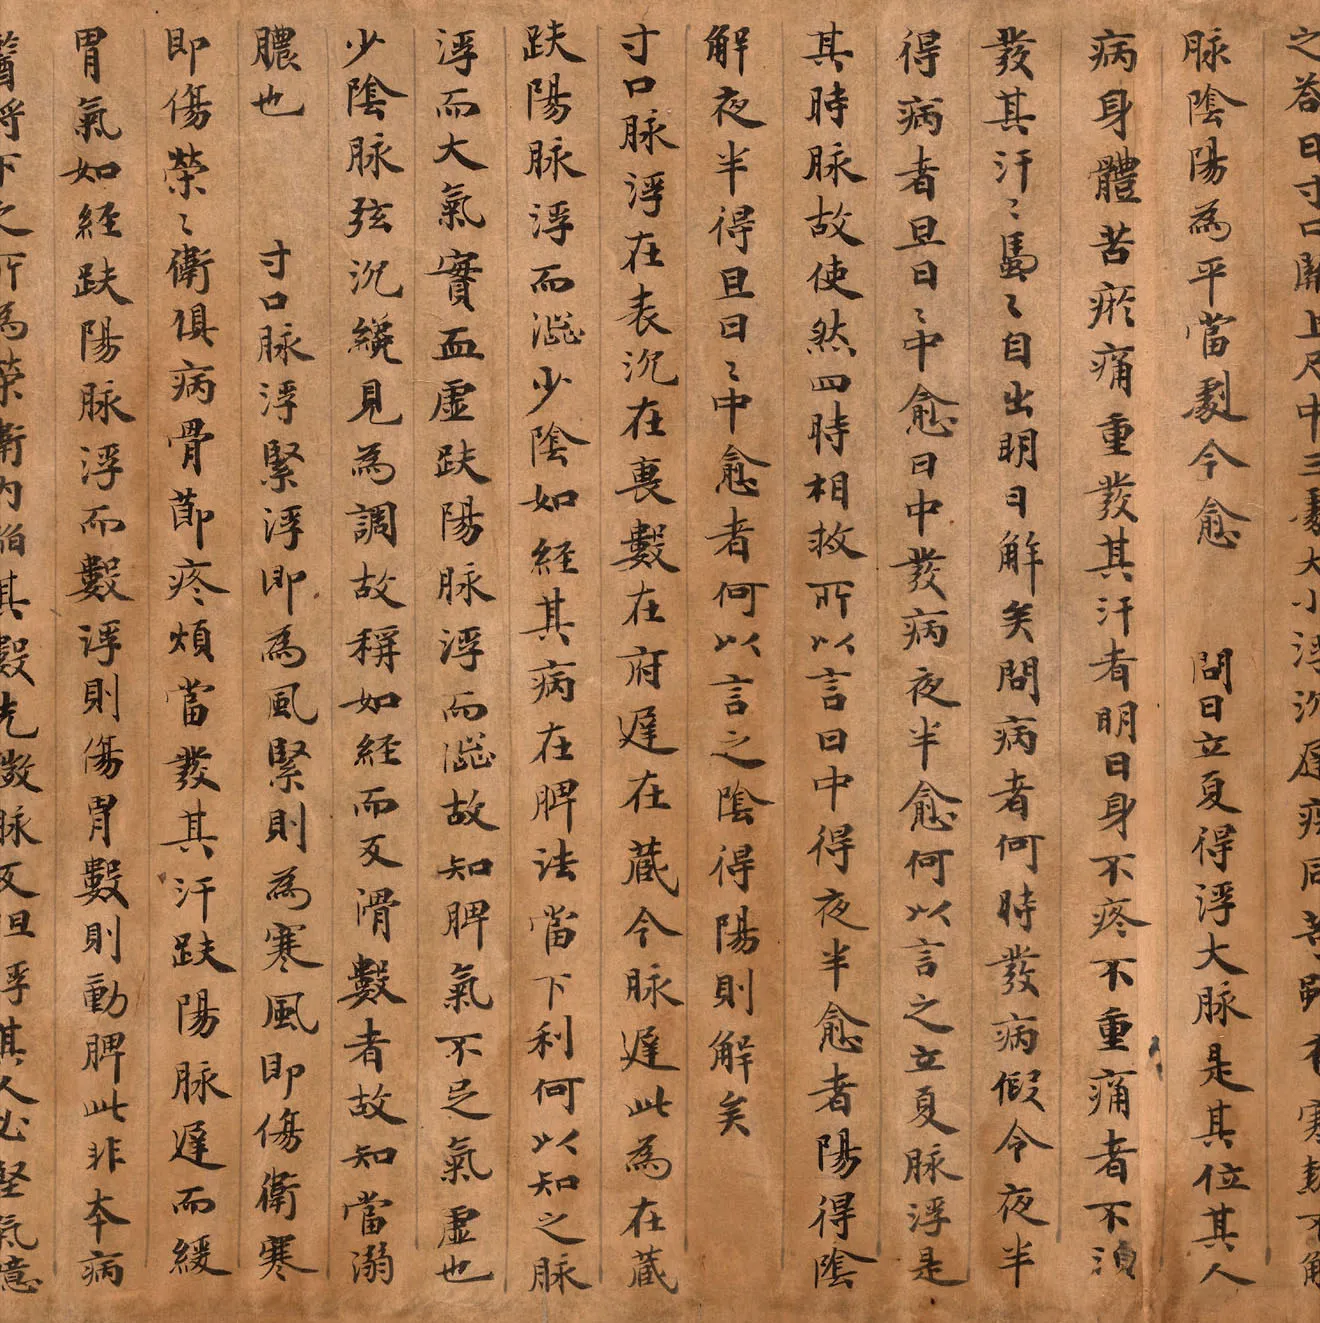 之荅曰寸口關上尺中三處大小浮沉遲疾同等雖有寒熱不解
脉陰陽為平當劇今愈　問曰立夏得浮大脉是其位其人
病身體苦瘀痛重發其汗者明日身不疼不重痛者不須
發其汗〻濈〻自出明日解矣問病者何時發病假令夜半
得病者旦日〻中愈日中發病夜半愈何以言之立夏脉浮是
其時脉故使然四時相救所以言日中得夜半愈者陽得陰
解夜半得旦日〻中愈者何以言之陰得陽則解矣
寸口脉浮在表沉在裏數在府遲在蔵今脉遲此為在蔵
趺陽脉浮而澀少陰如経其病在脾法當下利何以知之脉
浮而大氣實血虛趺陽脉浮而澀故知脾氣不足氣虛也
少陰脉弦沉纔見為調故稱如経而反滑數者故知當溺
膿也　寸口脉浮緊浮即為風緊則為寒風即傷衛寒
即傷榮〻衛俱病骨節疼煩當發其汗趺陽脉遲而緩
胃氣如経趺陽脉浮而數浮則傷胃數則動脾此非本病
醫將下之所為榮衛內陷其數先微脉反但浮其人必堅氣噫